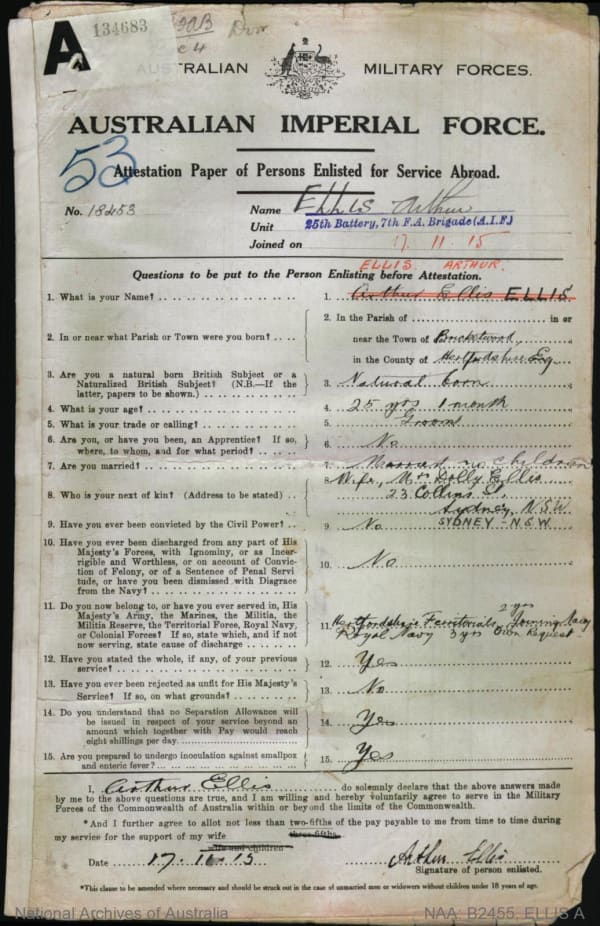 A
134683
AUSTRALIAN MILITARY FORCES.
AUSTRALIAN IMPERIAL FORCE.
53
Attestation Paper of Persons Enlisted for Service Abroad.
No. 18453 Name ELLIS Arthur
Unit 25th Battery, 7th F.A. Brigade (A.I.F.)
Joined on 17. 11. 15
ELLIS ARTHUR.
Questions to be put to the Person Enlisting before Attestation.
1. What is your Name? 1. Arthur Ellis ELLIS.
2. In or near what Parish or Town were you born? 2. In the Parish of in or
near the Town of
in the County of Hertfordshire Eng
3. Are you a natural born British Subject or a
Naturalized British Subject? (N.B.—If the
latter, papers to be shown.) 3. Natural born
4. What is your age? 4. 25 yrs 1 month
5. What is your trade or calling? 5. Groom
6. Are you, or have you been, an Apprentice? If so,
where, to whom, and for what period? 6. No
7. Are you married? 7. Married no children
8. Who is your next of kin? (Address to be stated) 8. Wife, Mrs Dolly Ellis
23 Collins St.
Sydney N.S.W.
SYDNEY - N.S.W.
9. Have you ever been convicted by the Civil Power? 9. No
10. Have you ever been discharged from any part of His
Majesty's Forces, with Ignominy, or as Incor-
rigible and Worthless, or on account of Convic-
tion of Felony, or of a Sentence of Penal Servi
tude, or have you been dismissed with Disgrace
from the Navy? 10. No
11. Do you now belong to, or have you ever served in, His
Majesty's Army, the Marines, the Militia, the
Militia Reserve, the Territorial Force, Royal Navy,
or Colonial Forces? If so, state which, and if not
now serving, state cause of discharge 11. Hertfordshire Territorials 2 yrs Joining Navy
Royal Navy 3 yrs Own Request
12. Have you stated the whole, if any, of your previous
service? 12. Yes
13. Have you ever been rejected as unfit for His Majesty's
Service? If so, on what grounds? 13. No
14. Do you understand that no Separation Allowance will
be issued in respect of your service beyond an
amount which together with Pay would reach
eight shillings per day. 14. Yes
15. Are you prepared to undergo inoculation against smallpox
and enteric fever? 15. Yes
I, Arthur Ellis do solemnly declare that the above answers made
by me to the above questions are true, and I am willing and hereby voluntarily agree to serve in the Military
Forces of the Commonwealth of Australia within or beyond the limits of the Commonwealth.
*And I further agree to allot not less than two-fifths of the pay payable to me from time to time during
three-fifths
my service for the support of my wife
wife and children
Date 17. 11. 15 Arthur Ellis
Signature of person enlisted.
*This clause to be amended where necessary and should be struck out in the case of unmarried men or widowers without children under 18 years of age.
National Archives of Australia NAA: B2455, ELLIS A